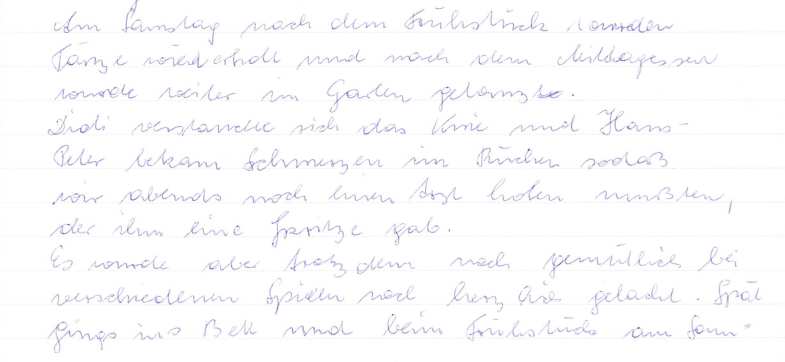 Am Samstag nach dem Frühstück wurden
Tänze wiederholt und nach dem Mittagessen
wurde weiter im Garten getanzt.
Didi verstauchte sich das Knie und Hans-
Peter bekam Schmerzen im Rücken sodaß
wir abends noch einen Arzt holen mußten,
der ihm eine Spritze gab.
Es wurde aber trotzdem noch gemütlich bei
verschiedenen Spielen noch herzlich gelacht. Spät
gings ins Bett und beim Frühstück am Sonn-